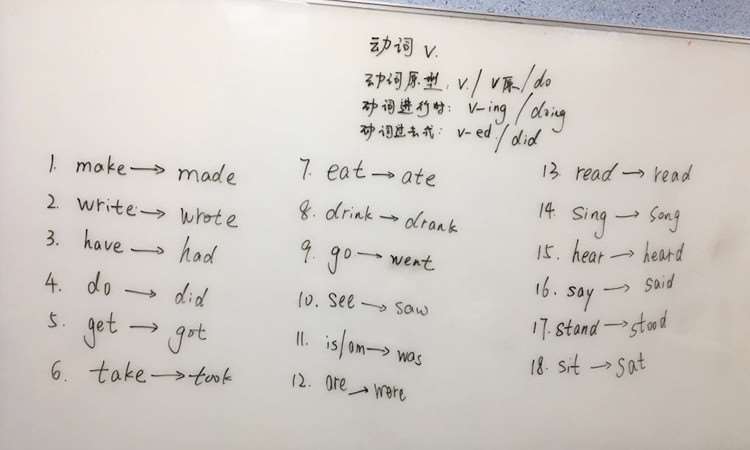 动词 v.
动词原型: v. / v原 / do
动词进行时: v-ing / doing
动词过去式: v-ed / did
1. make → made
2. write → wrote
3. have → had
4. do → did
5. get → got
6. take → took
7. eat → ate
8. drink → drank
9. go → went
10. see → saw
11. is/am → was
12. are → were
13. read → read
14. sing → sang
15. hear → heard
16. say → said
17. stand → stood
18. sit → sat